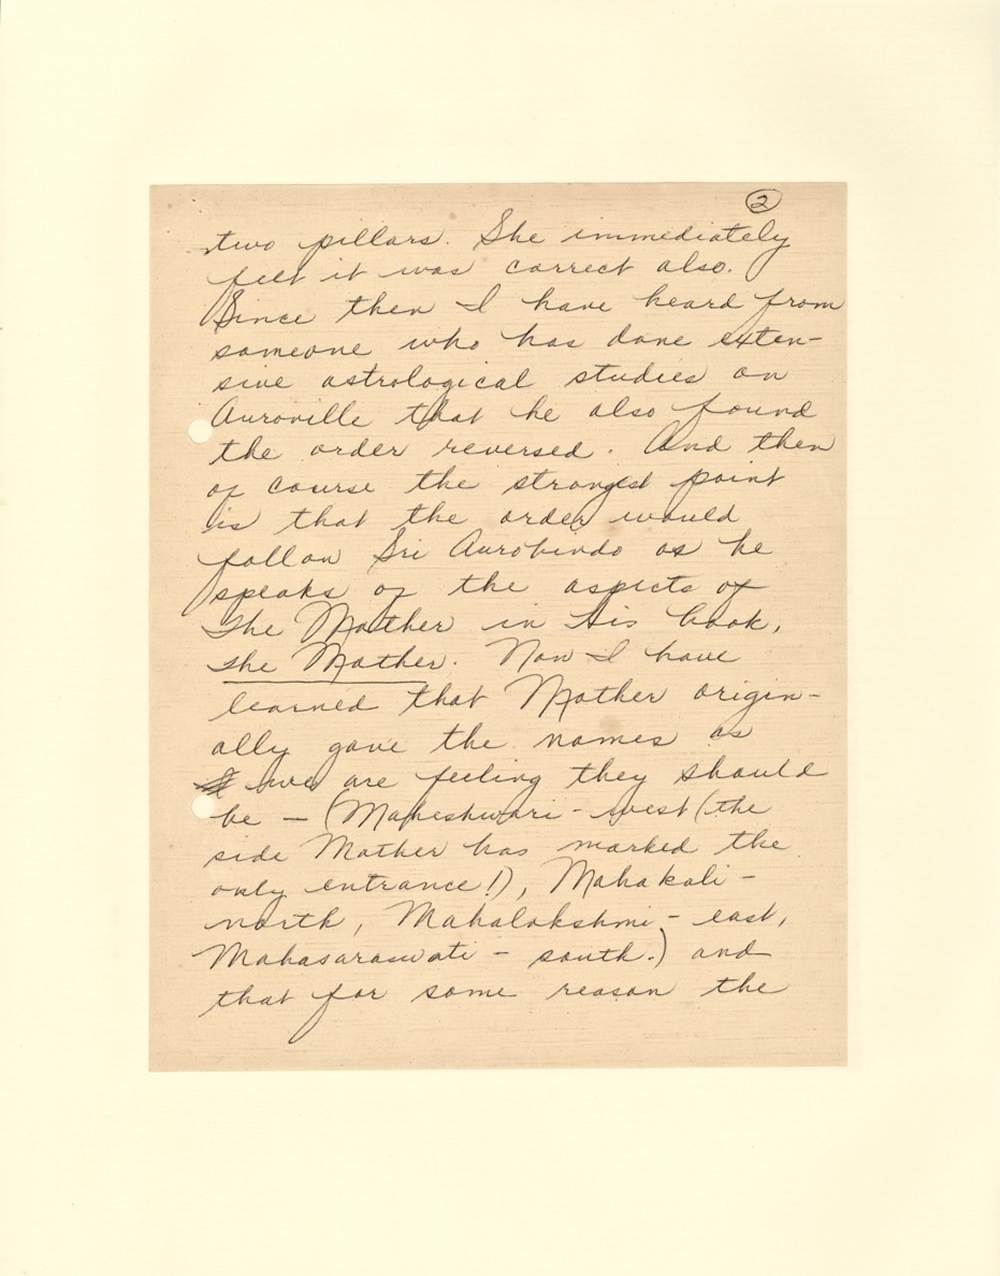 2
two pillars. She immediately
felt it was correct also.
Since then I have heard from
someone who has done exten-
sive astrological studies on
Auroville that he also found
the order reversed. And then
of course the strongest point
is that the order would
follow Sri Aurobindo as he
speaks of the aspects of
The Mother in His book,
The Mother. Now I have
learned that Mother origin-
ally gave the names as
we are feeling they should
be — (Maheshwari - west (the
side Mother has marked the
only entrance!), Mahakali -
north, Mahalakshmi - east,
Mahasaraswati - south.) and
that for some reason the